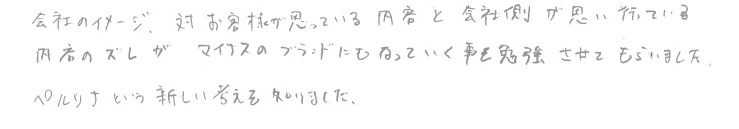 会社のイメージ、対お客様が思っている内容と会社側が思い行っている
内容のズレがマイナスのブランドにもなっていく事を勉強させてもらいました。
ペルソナという新しい考えを知りました。